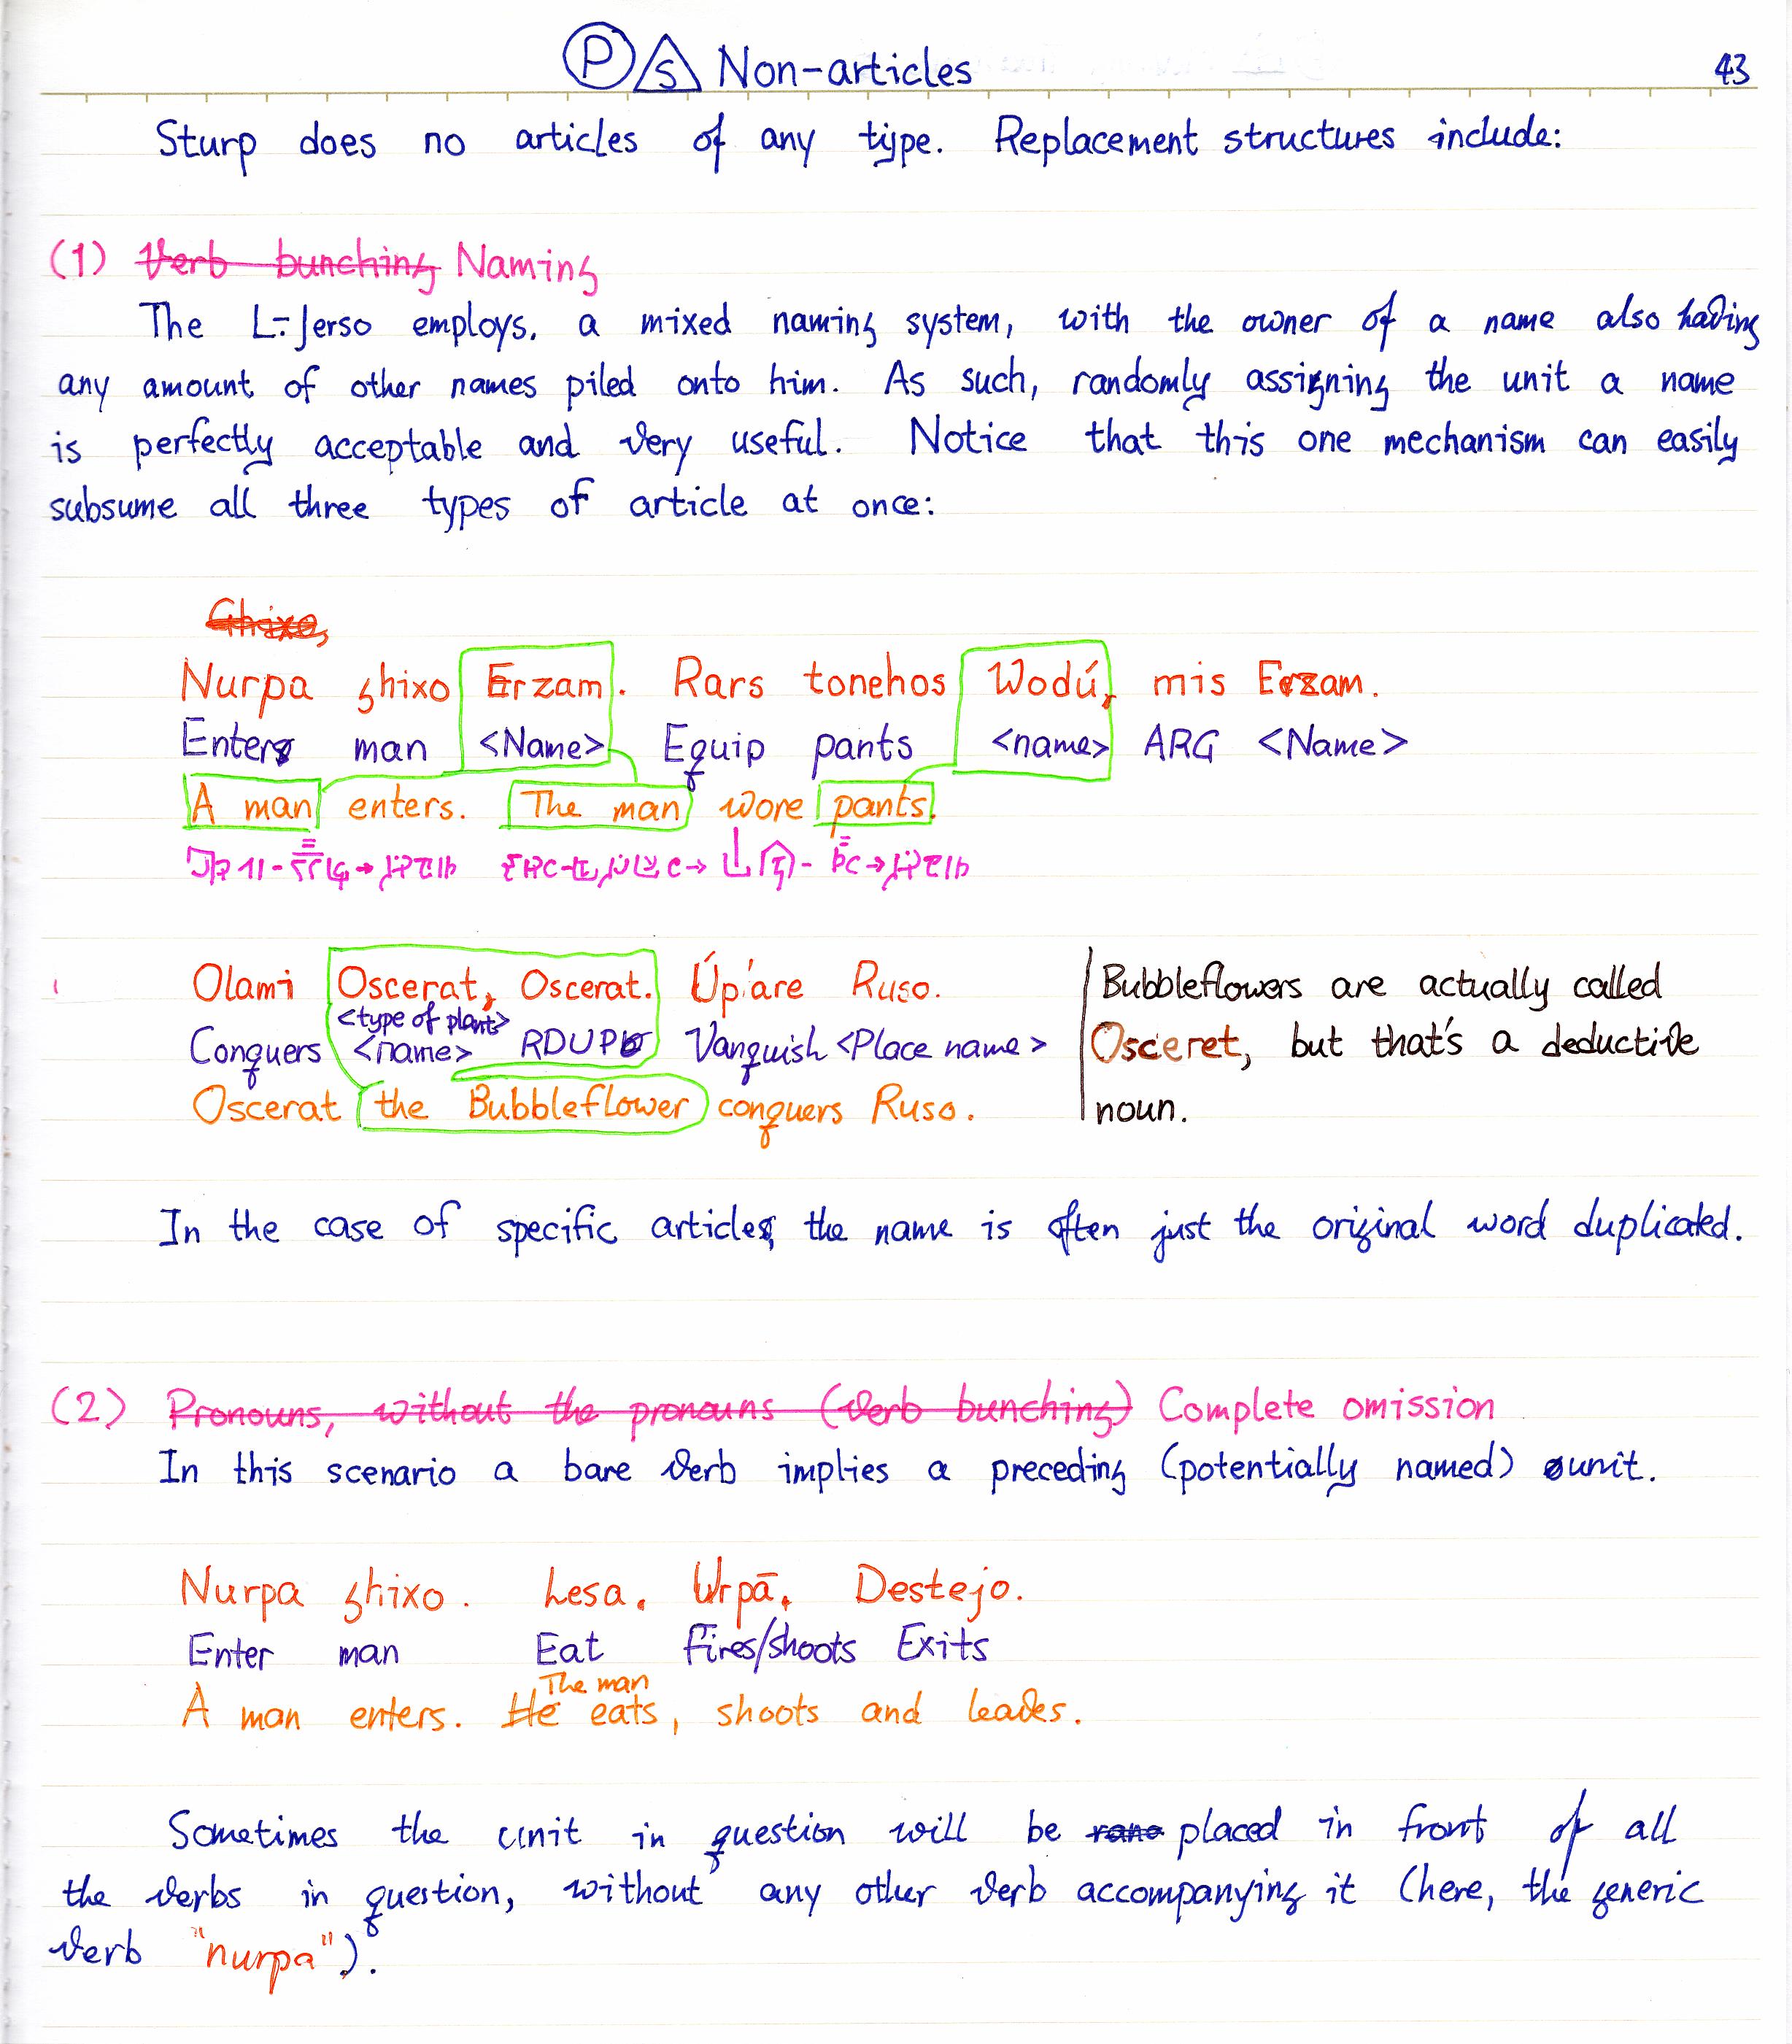 P S Non-articles 43
Sturp does no articles of any type. Replacement structures include:
(1) Verb bunching Naming
The L-Jerso employs. a mixed naming system, with the owner of a name also having
any amount of other names piled onto him. As such, randomly assigning the unit a name
is perfectly acceptable and very useful. Notice that this one mechanism can easily
subsume all three types of article at once:
Ghixo,
Nurpa ghixo Erzam. Rars tonehos Wodú, mis Erzam.
Enters man <Name> Equip pants <name> ARG <Name>
A man enters. The man wore pants.
Olami Oscerat, Oscerat. Úp'are Ruso.
<type of plant>
Conquers <name> RDUP Vanquish <Place name>
Oscerat the Bubbleflower conquers Ruso.
Bubbleflowers are actually called
Osceret, but that's a deductive
noun.
In the case of specific articles, the name is often just the original word duplicated.
(2) Pronouns, without the pronouns (verb bunching) Complete omission
In this scenario a bare verb implies a preceding (potentially named) unit.
Nurpa ghixo. Lesa. Urpā. Destejo.
Enter man Eat Fires/shoots Exits
The man
A man enters. He eats, shoots and leaves.
Sometimes the unit in question will be placed in front of all
the verbs in question, without any other verb accompanying it (here, the generic
verb "nurpa").